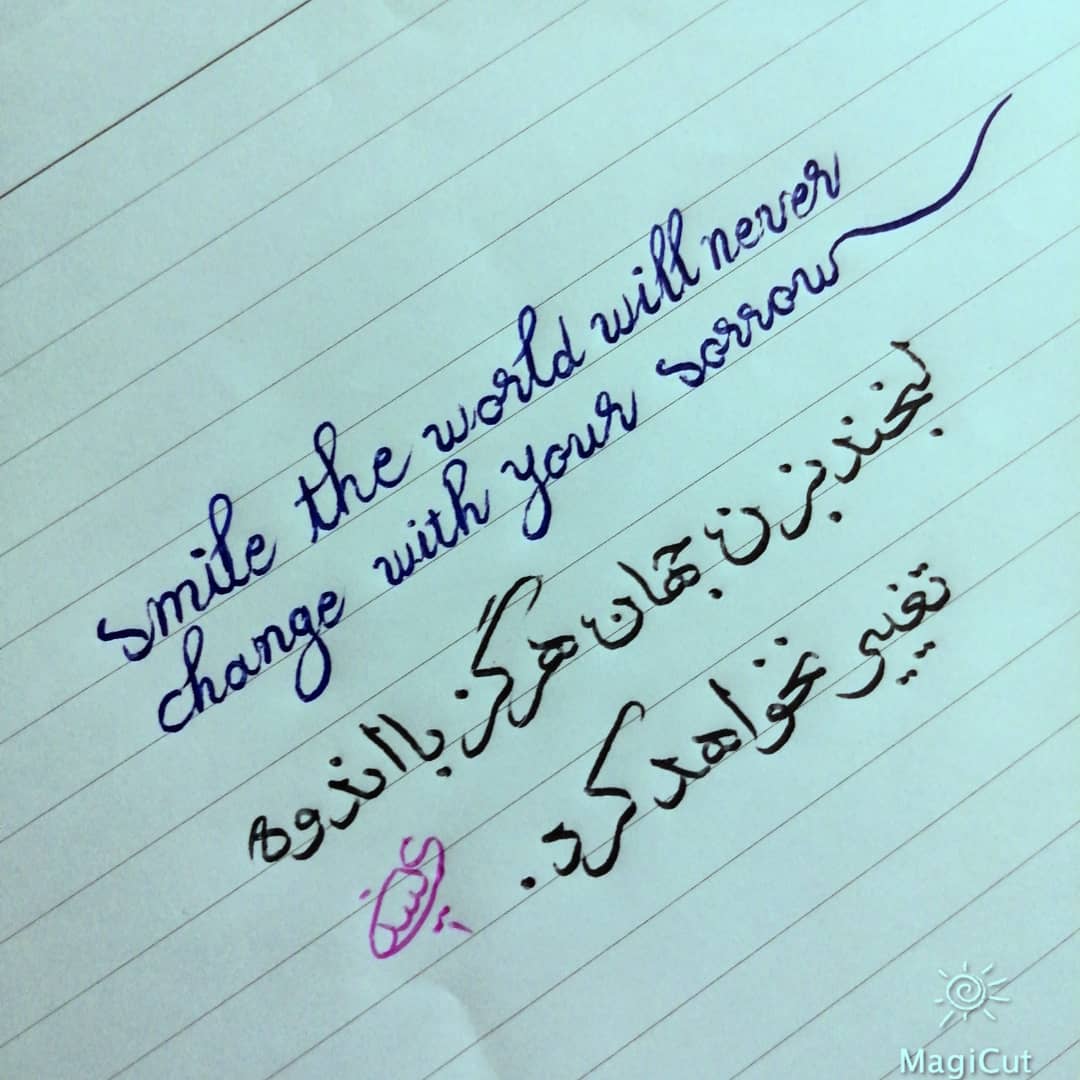 smile the world will never
change with your sorrow
لبخند بزن جهان هرگز با اندوه
تغییر نخواهد کرد.
MagiCut